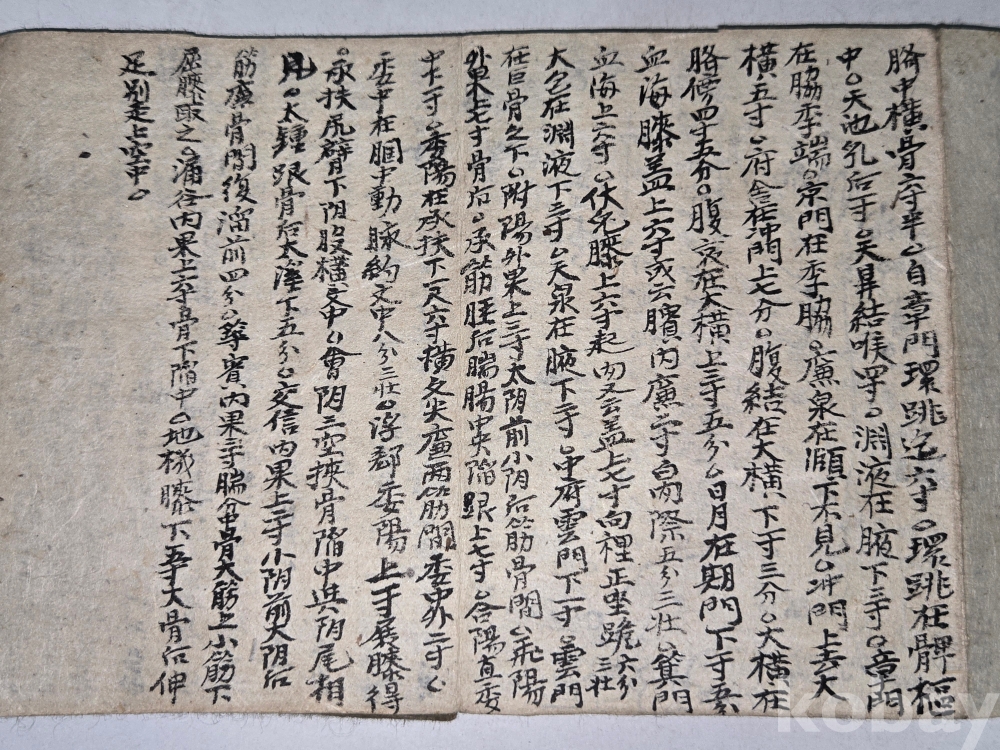 胳中橫骨六寸半。自章門環跳迄六寸。環跳在髀樞
中。天池乳后一寸。天鼎結喉四寸。淵液在腋下三寸。章門
在脇季端。京門在季脇。廉泉在頤下不見。冲門上去大
橫五寸。府舍在冲門上七分。腹結在大橫下一寸三分。大橫在
胳傍四寸五分。腹哀在大橫上三寸五分。日月在期門下一寸五
血海膝盖上六寸或云臏內廉二寸白肉際五分三壯。箕門
血海上六寸。伏兔膝上六寸起肉又云盖上七寸向裡正坐跪六分三壯
大包在淵液下三寸。天泉在腋下二寸。中府雲門下一寸。雲門
在巨骨之下。附陽外果上三寸太阴前小阴后筋骨間。飛陽
外果七寸骨后。承筋脛后腨腸中央陷跟上七寸。合陽直委
中下二寸。委陽在承扶下一尺六寸橫文尖廉兩筋間委中外二寸。
委中在膕中動脉約文中八分三壯。浮郄委陽上一寸展膝得
。承扶尻臂下阴股橫文中。會阴三空挾骨陷中與阴尾相
見。太鍾跟骨后太溪下五分。交信內果上二寸小阴前大阴后
筋廉骨間復溜前四分。築賓內果上腨分中骨大筋上小筋下
屈膝取之。漏谷內果上六寸骨下陷中。地機膝下五寸大骨后伸
足別走上空中。
kobay